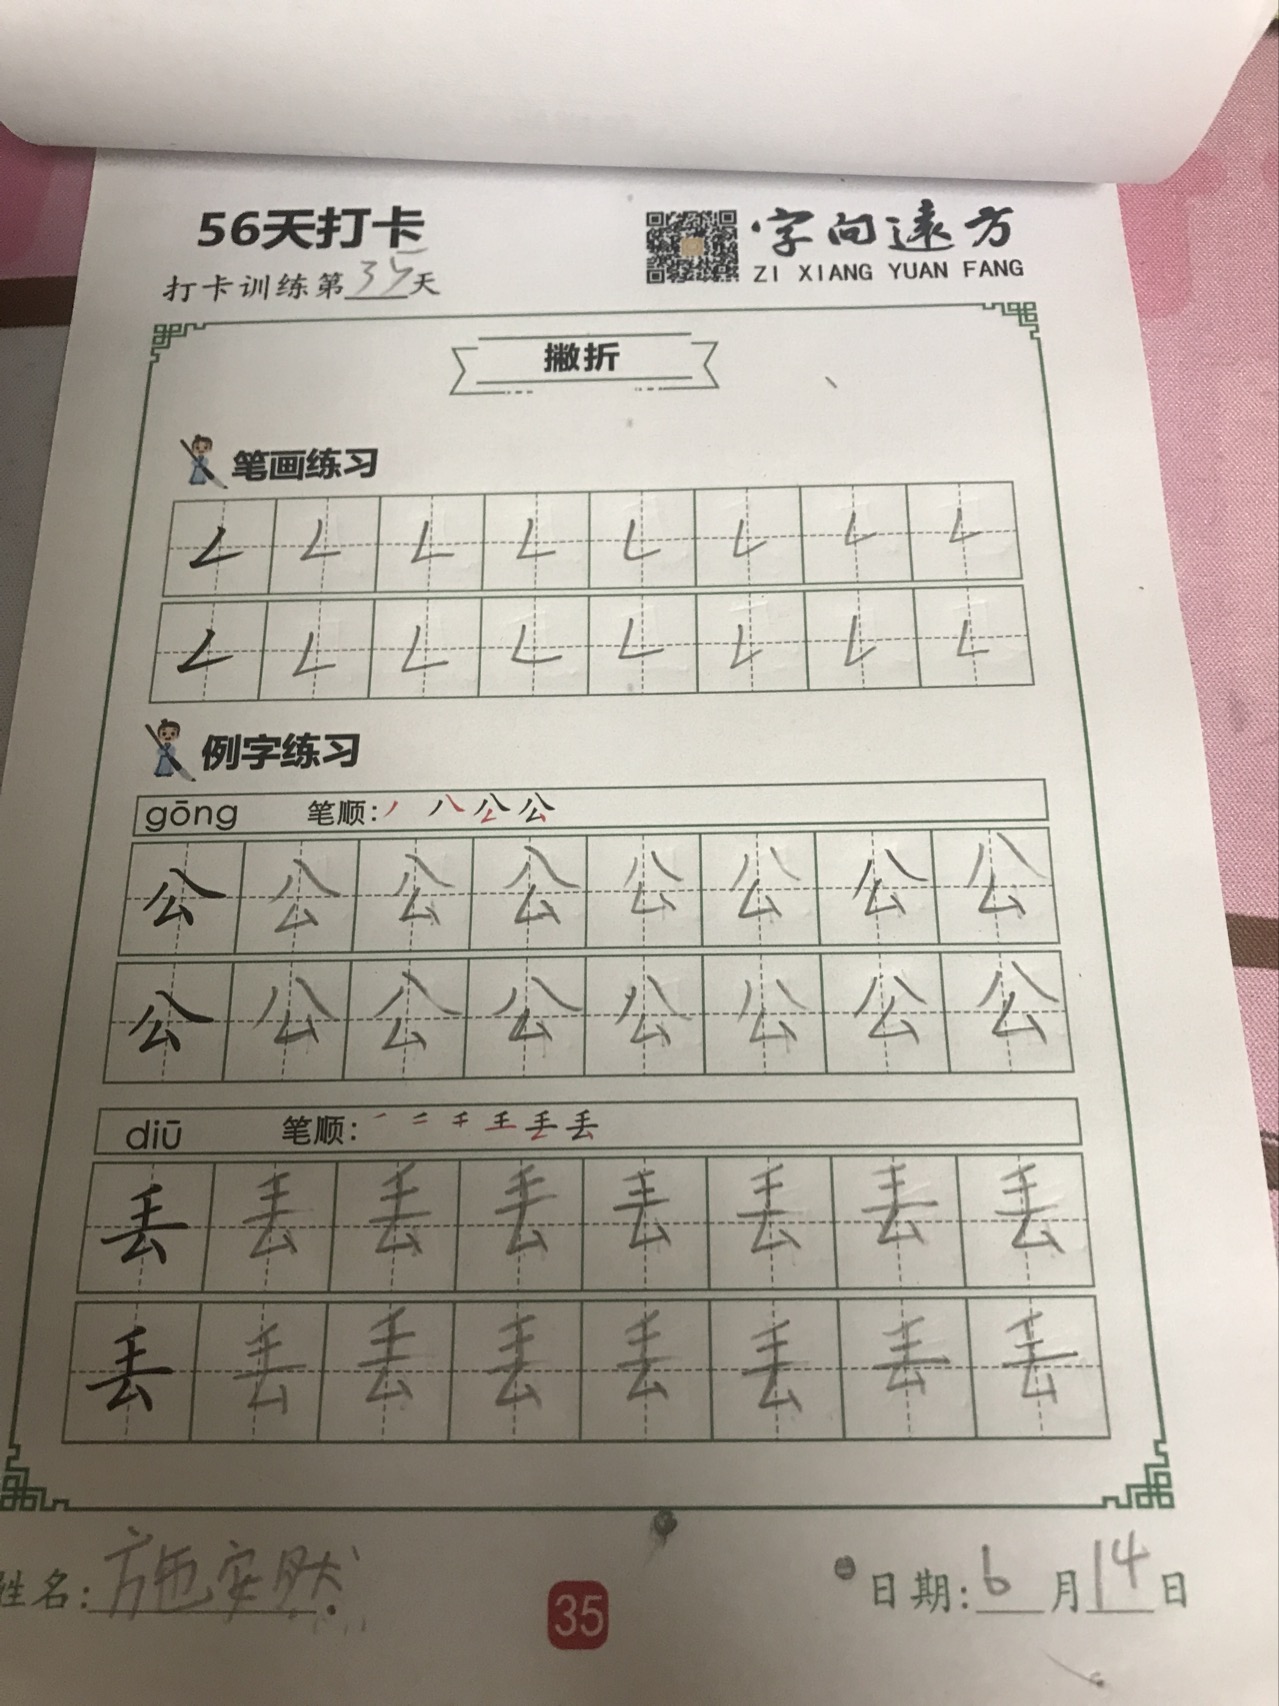 56天打卡
字向遠方
打卡训练第35天
ZI XIANG YUAN FANG
撇折
笔画练习
𠃋 𠃋 𠃋 𠃋 𠃋 𠃋 𠃋 𠃋
𠃋 𠃋 𠃋 𠃋 𠃋 𠃋 𠃋 𠃋
例字练习
gōng 笔顺: 丿 八 公 公
公 公 公 公 公 公 公 公
公 公 公 公 公 公 公 公
diū 笔顺: 一 二 千 王 丢 丢
丢 丢 丢 丢 丢 丢 丢 丢
丢 丢 丢 丢 丢 丢 丢 丢
姓名: 施安然
35
日期: 6 月 14 日